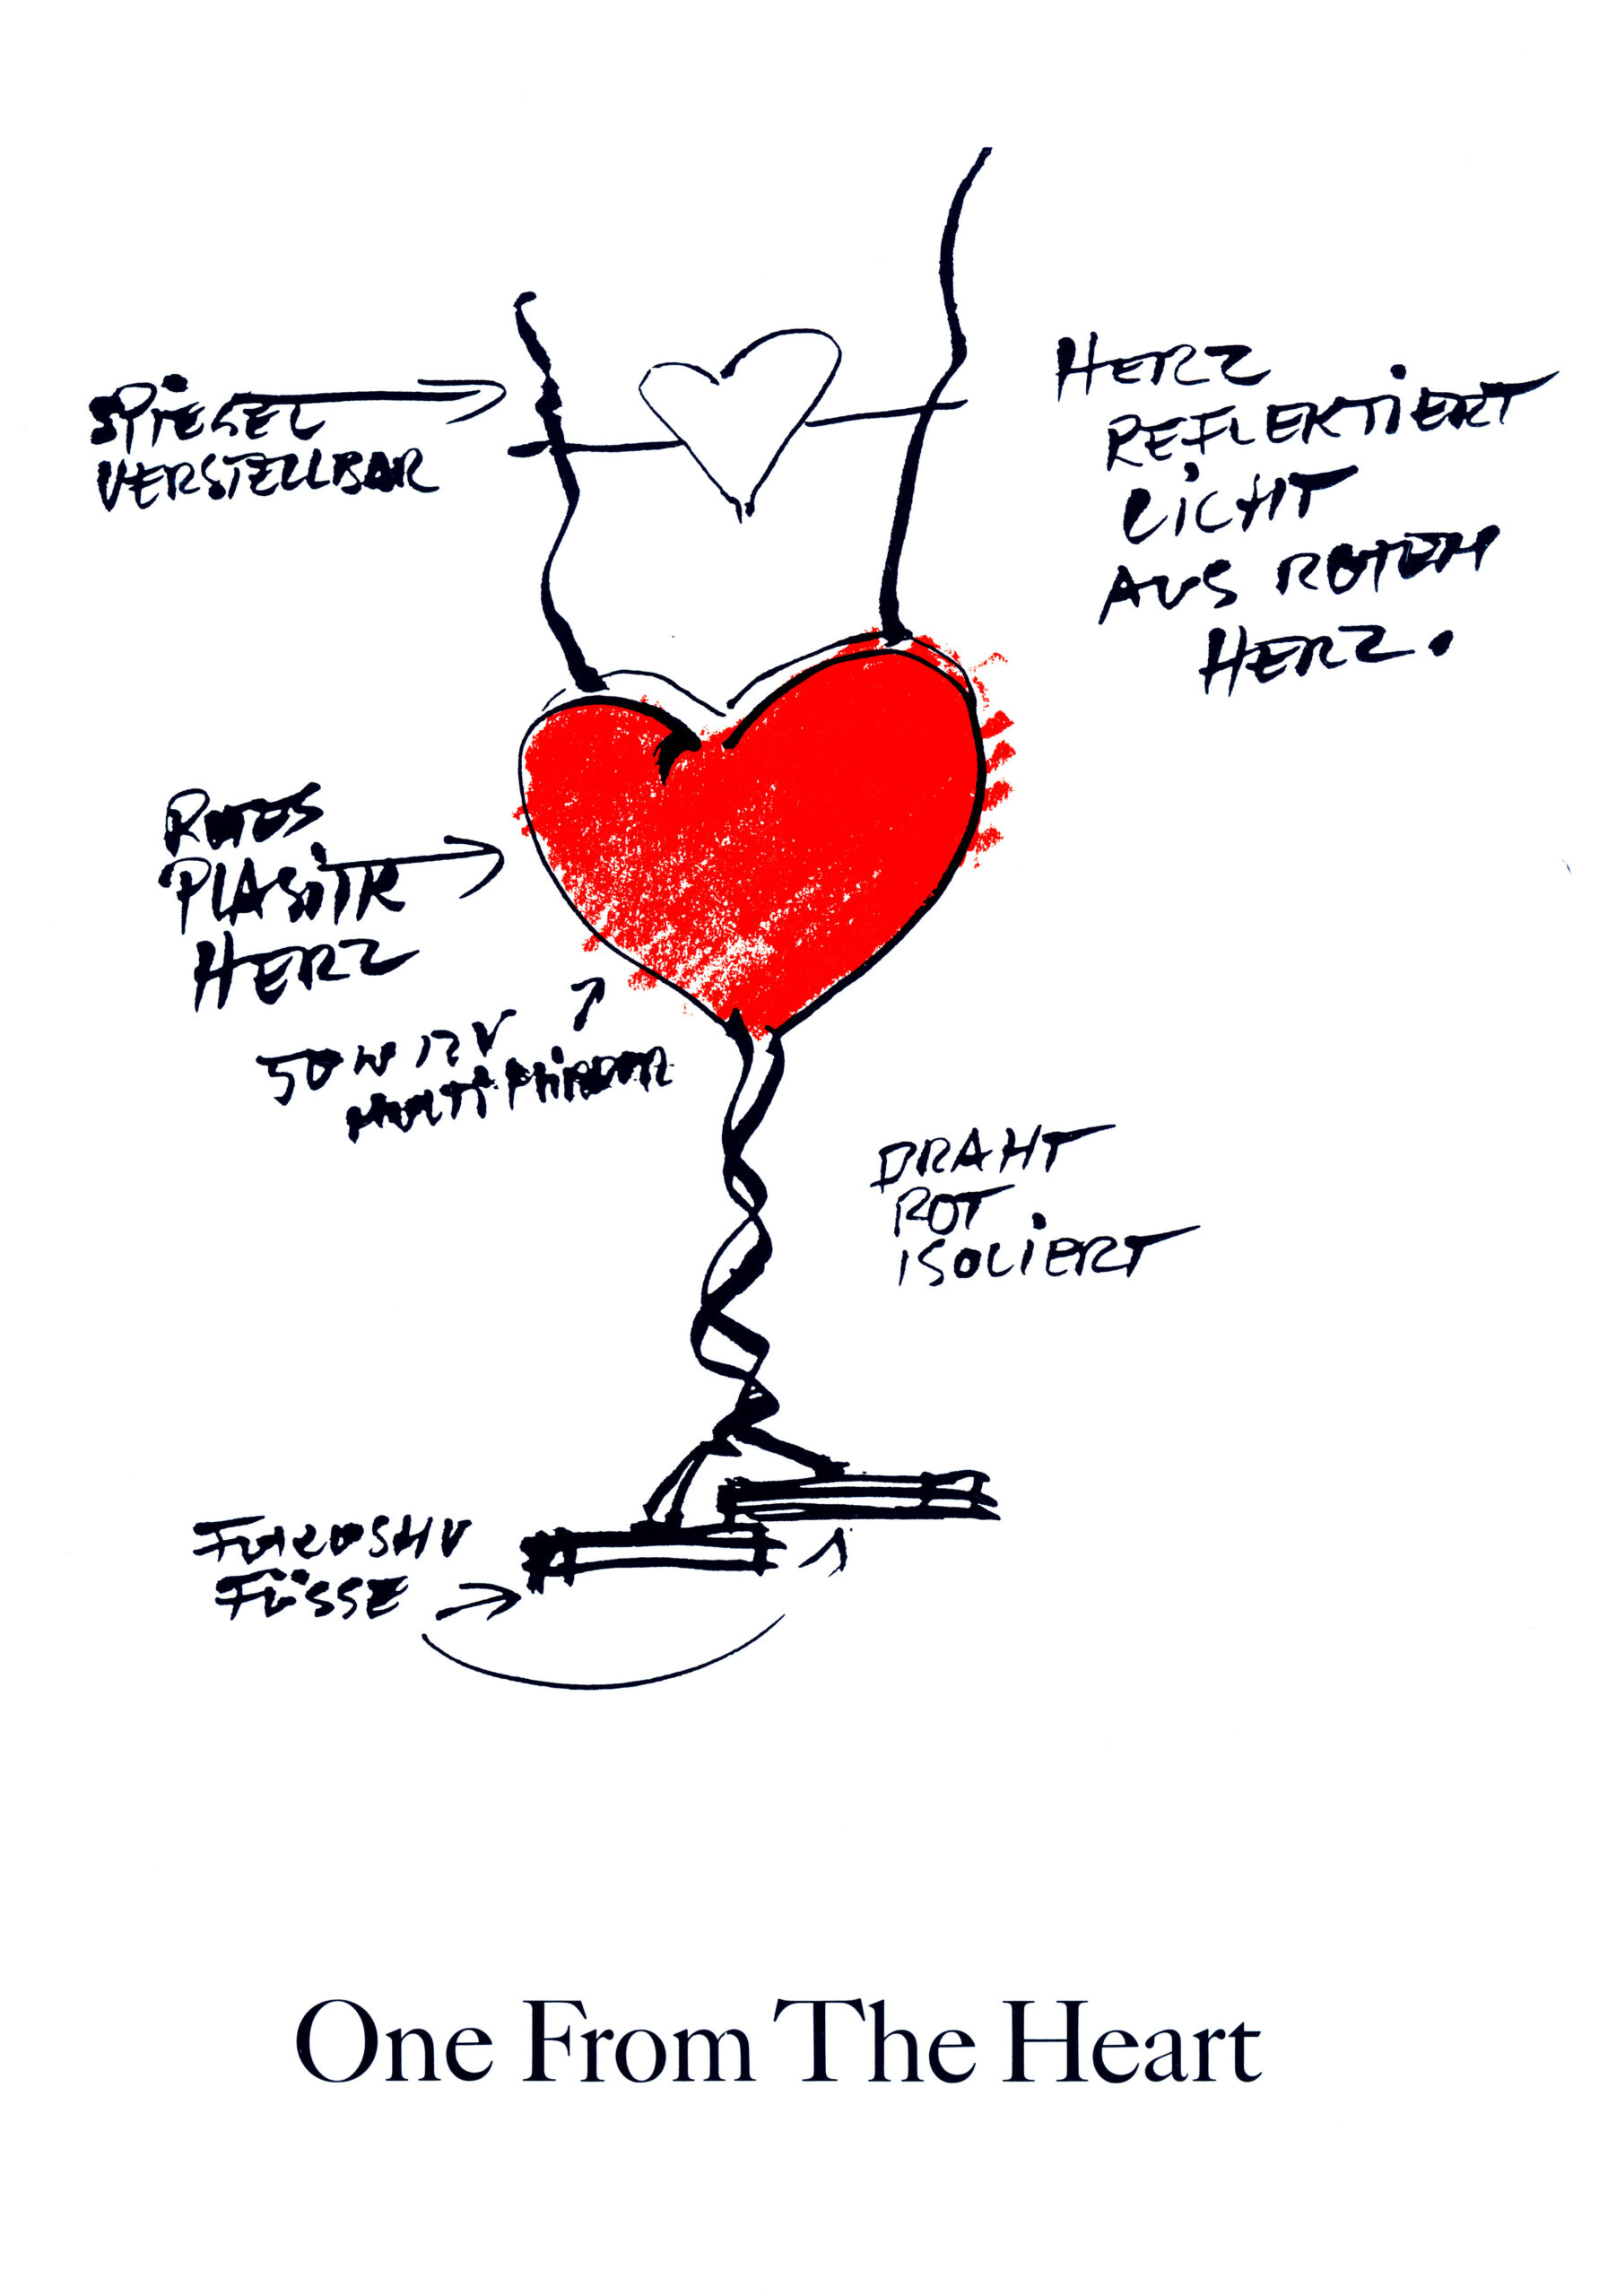 SPIEGEL
VERSTELLBAR
HERZ
REFLEKTIERT
LICHT
AUS ROTEM
HERZ.
ROTES
PLASTIK
HERZ
50 W 12 V
DRAHT
ROT
ISOLIERT
FUKUSHU
FÜSSE
One From The Heart